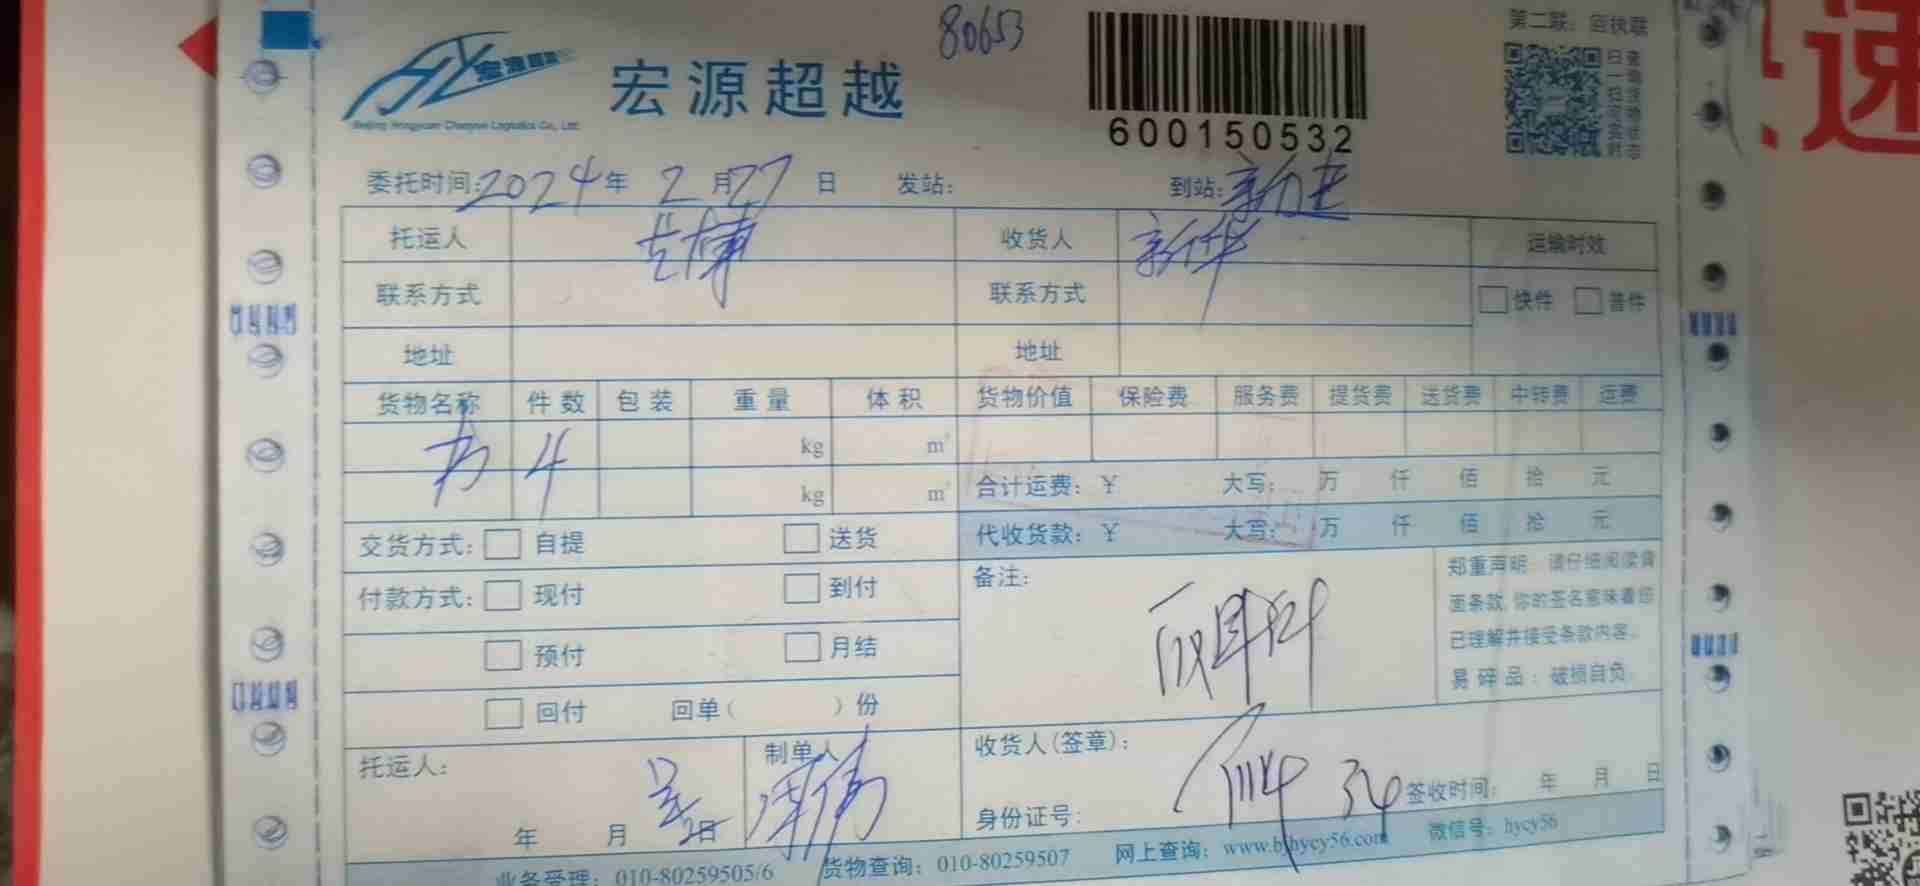 80653
第二联：回执联
宏源超越
Beijing Hongyuan Chaoyue Logistics Co., Ltd.
宏源超越
600150532
委托时间：2024年 2月27日 发站： 到站：新疆
托运人 收货人 新华 运输时效
联系方式 联系方式 快件 普件
地址 地址
货物名称 件数 包装 重量 体积 货物价值 保险费 服务费 提货费 送货费 中转费 运费
书 4 kg m³
kg m³ 合计运费：¥ 大写： 万 仟 佰 拾 元
交货方式： 自提 送货 代收货款：¥ 大写： 万 仟 佰 拾 元
付款方式： 现付 到付
预付 月结
回付 回单（ ）份
备注：
郑重声明：请仔细阅读背
面条款，你的签名意味着您
已理解并接受条款内容。
易碎品：破损自负。
托运人： 年 月 日 制单人
收货人(签章)：
身份证号： 签收时间： 年 月 日
业务受理：010-80259505/6 货物查询：010-80259507 网上查询：www.bjhycy56.com 微信号：hycy56
速